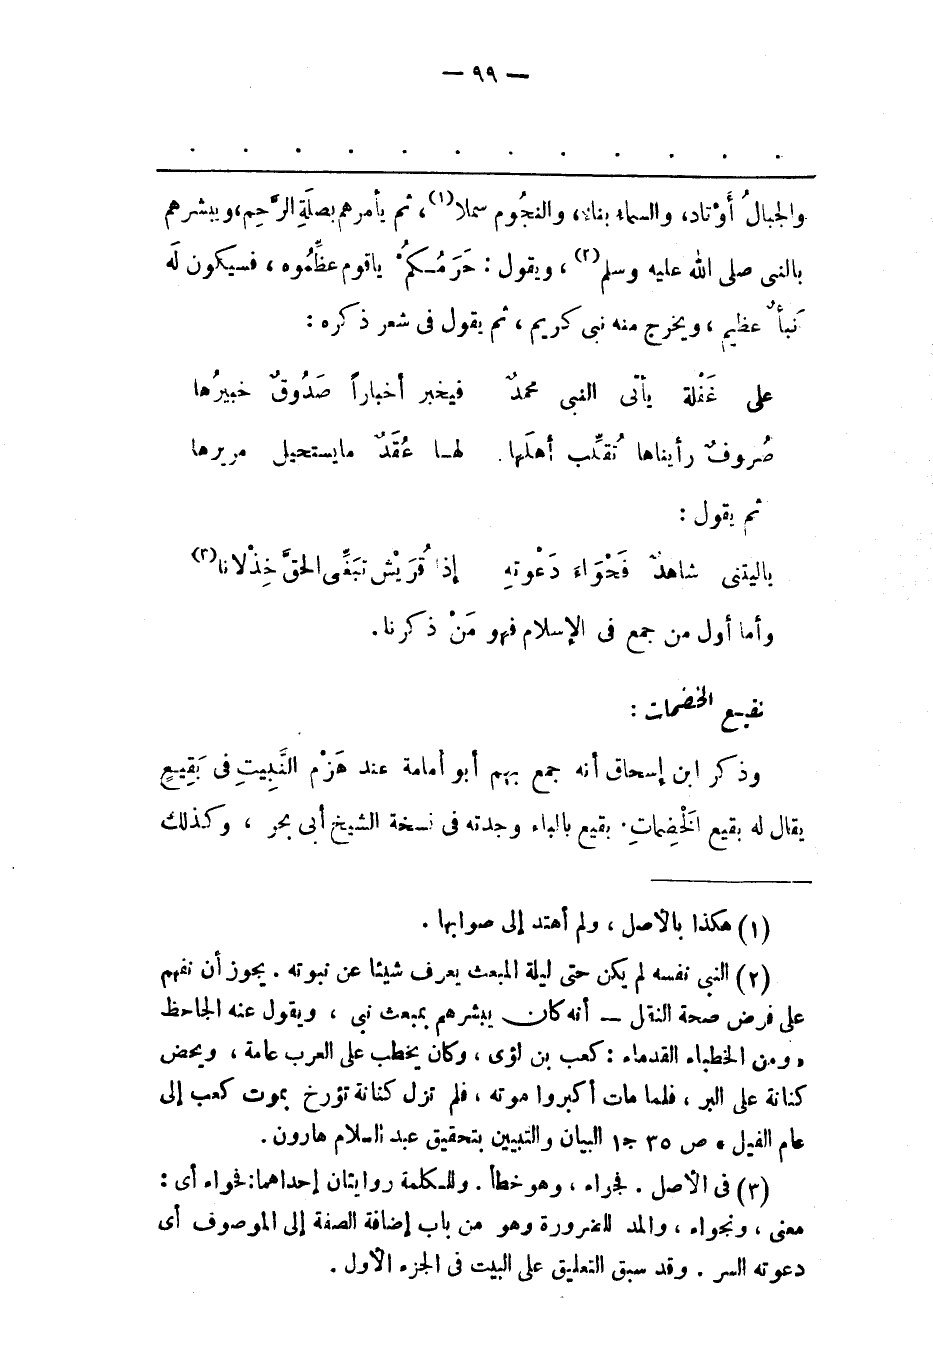 — ٩٩ —
. . . . . . . . . . . .
والجبالُ أَوْتاد، والسماء بناء، والنجُوم سملا(١)، ثم يأمرهم بصلَةِ الرَّحِمِ، ويبشرهم
بالنبى صلى الله عليه وسلم(٢)، ويقول : حَرَمُـكُمْ ياقوم عظِّمُوه ، فسيكون لَه
نَبأٌ عظيم ، ويخرج منه نبى كريم ، ثم يقول فى شعر ذكره :
على غَفْلة يأتى النبى محمدٌ فيخبر أخباراً صَدُوقٌ خبيرُها
صُروفٌ رأيناها تُقلِّب أهلَها . لهـا عُقَدٌ مايستحيل مريرها
ثم يقول :
ياليتنى شاهدٌ فَحْوَاءَ دَعْوتهِ إذا قُرَيْش تبَغِّى الحقَّ خِذْلانا(٣)
وأما أول من جمع فى الإسلام فهو مَنْ ذكرنا .
نقيـع الخضمات :
وذكر ابن إسحاق أنه جمع بهم أبو أمامة عند هَزْم النَّبِيتِ فى بَقِيـعٍ
يقال له بقيع الخَضِماتِ . بقيع بالباء وجدته فى نسخة الشيخ أبى بحر ، وكذلك
(١) هكذا بالأصل ، ولم أهتد إلى صوابها .
(٢) النبى نفسه لم يكن حتى ليلة المبعث يعرف شيئا عن نبوته . يجوز أن نفهم
على فرض صحة النقل — أنه كان يبشرهم بمبعث نبى ، ويقول عنه الجاحظ
« ومن الخطباء القدماء : كعب بن لؤى ، وكان يخطب على العرب عامة ، ويحض
كنانة على البر ، فلما مات أكبروا موته ، فلم تزل كنانة تؤرخ بموت كعب إلى
عام الفيل » ص ٣٥ ج١ البيان والتبيين بتحقيق عبد السلام هارون .
(٣) فى الأصل . فجراء ، وهو خطأ . وللكلمة روايتان إحداهما: فحواء أى :
معنى ، ونجواء ، والمد للضرورة وهو من باب إضافة الصفة إلى الموصوف أى
دعوته السر . وقد سبق التعليق على البيت فى الجزء الأول .